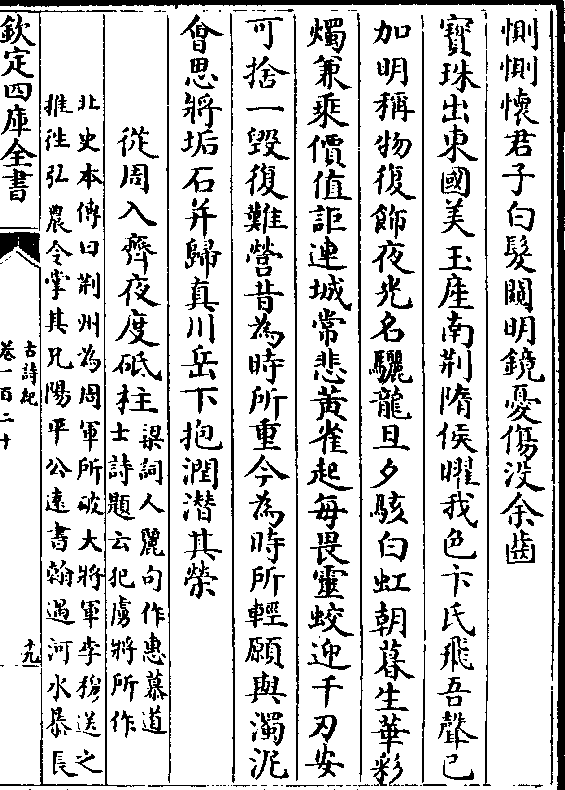 惻惻懷君子白髮闚明鏡憂傷没余齒
寳珠出東國美玉産南荆隋侯曜我色卞氏飛吾聲已
加明稱物復飾夜光名驪龍旦夕駭白虹朝暮生華彩
燭兼乘價值詎連城常悲黄雀起每畏靈蛟迎千刃安
可捨一毁復難營昔為時所重今為時所輕願與濁泥
會思將垢石并歸真川岳下抱潤潛其榮
從周入齊夜度砥柱
梁詞人麗句作惠慕道
士詩題云犯虜將所作
北史本傳曰荆州為周軍所破大將軍李穆送之
推徃弘農令掌其兄陽平公遠書翰遇河水暴長
欽定四庫全書
古詩紀
卷一百二十
十九